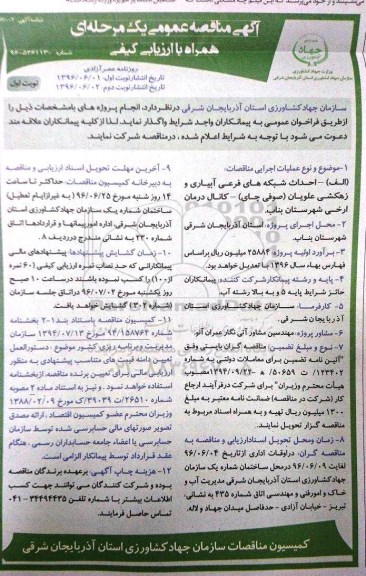 آگهی مناقصه عمومی یک مرحله‌ای
همراه با ارزیابی کیفی
جهاد
وزارت جهاد کشاورزی
سازمان جهاد کشاورزی استان آذربایجان شرقی
روزنامه عصرآزادی
تاریخ انتشارنوبت اول: ۱۳۹۶/۰۶/۰۱
تاریخ انتشارنوبت دوم: ۱۳۹۶/۰۶/۰۲
نوبت اول
سازمان جهادکشاورزی استان آذربایجان شرقی درنظردارد، انجام پروژه های بامشخصات ذیل را
ازطریق فراخوان عمومی به پیمانکاران واجد شرایط واگذار نماید. لذا ازکلیه پیمانکاران علاقه مند
دعوت می شود با توجه به شرایط اعلام شده ، درمناقصه شرکت نمایند.
۱-موضوع و نوع عملیات اجرایی مناقصات:
(الف) - احداث شبکه های فرعی آبیاری و
زهکشی علویان (صوفی چای) - کانال درمان
ارخی شهرستان بناب.
۲- محل اجرای پروژه: استان آذربایجان شرقی
شهرستان بناب.
۳- برآورد اولیه پروژه: ۲۵۸۸۴ میلیون ریال براساس
فهارس بهاء سال ۱۳۹۶ با تعدیل خواهد بود.
۴- پایه و رشته پیمانکارشرکت کننده: پیمانکاران
حائز شرایط پایه ۵ و به بالا رشته آب
۵- کارفرما: سازمان جهادکشاورزی استان
آذربایجان شرقی.
۶- مشاور پروژه: مهندسین مشاور آتی نگار عمران آلو.
۷- نوع و مبلغ تضمین: مناقصه گران بایستی وفق
"آئین نامه تضمین برای معاملات دولتی به شماره
۱۲۳۴۰۲/ت ۵۰۶۵۹ ه - ۱۳۹۴/۰۹/۲۲مصوب
هیأت محترم وزیران" برای شرکت درفرآیند ارجاع
کار (شرکت در مناقصه) ضمانت نامه معتبر به مبلغ
۱۳۰۰ میلیون ریال تهیه و به همراه اسناد مربوط به
مناقصه گزار تحویل نمایند.
۸- زمان ومحل تحویل اسنادارزیابی و مناقصه به
مناقصه گران: دراوقات اداری ازتاریخ ۹۶/۰۶/۰۴
لغایت ۹۶/۰۶/۰۹ درمحل ساختمان شماره یک سازمان
جهادکشاورزی استان آذربایجان شرقی مدیریت آب و
خاک و امورفنی و مهندسی اتاق شماره ۴۳۵ به نشانی:
تبریز - خیابان آزادی - حدفاصل میدان جهاد و لاله.
۹- آخرین مهلت تحویل اسناد ارزیابی و مناقصه
به دبیرخانه کمیسیون مناقصات: حداکثر تا ساعت
۱۴ روز شنبه مورخ ۹۶/۰۶/۲۵ (به غیرازایام تعطیل)
ساختمان شماره یک سازمان جهادکشاورزی استان
آذربایجان شرقی، اداره امورپیمانها و قراردادها اتاق
شماره ۲۳۰ به نشانی مندرج درردیف ۸.
۱۰- زمان گشایش پیشنهادها: پیشنهادهای مالی
پیمانکارانی که حد نصاب نمره ارزیابی کیفی (۶۰ نمره
از۱۰۰) را کسب نموده باشند درساعت ۱۰ صبح
روز یکشنبه مورخ ۹۶/۰۷/۰۲ دراتاق جلسه سازمان
(شماره ۳۰۲) گشایش خواهد یافت.
۱۱- کمیسیون مناقصه باستناد بند۱-۲ بخشنامه
شماره ۹۴/۱۵۸۷۶۴ مورخ ۱۳۹۴/۰۷/۱۳ سازمان
مدیریت وبرنامه ریزی کشور موضوع : دستورالعمل
تعیین دامنه قیمت های متناسب پیشنهادی به منظور
ارزیابی مالی برای تعیین برنده مناقصه ازبخشنامه
استفاده خواهد نمود . و نیز به استناد ماده ۲ مصوبه
شماره ۲۶۵۱۰/ت ۳۹۰۳۹ک مورخ ۱۳۸۸/۰۲/۰۹
وزیران محترم عضو کمیسیون اقتصاد ، ارائه مصدق
تصویر صورتهای مالی حسابرسی شده توسط سازمان
حسابرسی یا اعضاء جامعه حسابداران رسمی ، هنگام
عقد قرارداد توسط پیمانکار الزامی است.
۱۲- هزینه چاپ آگهی برعهده برندگان مناقصه
بوده و شرکت کنندگان می توانند جهت کسب
اطلاعات بیشتر با شماره تلفن ۳۴۴۹۴۴۳۵ - ۰۴۱
تماس حاصل فرمایند.
کمیسیون مناقصات سازمان جهادکشاورزی استان آذربایجان شرقی